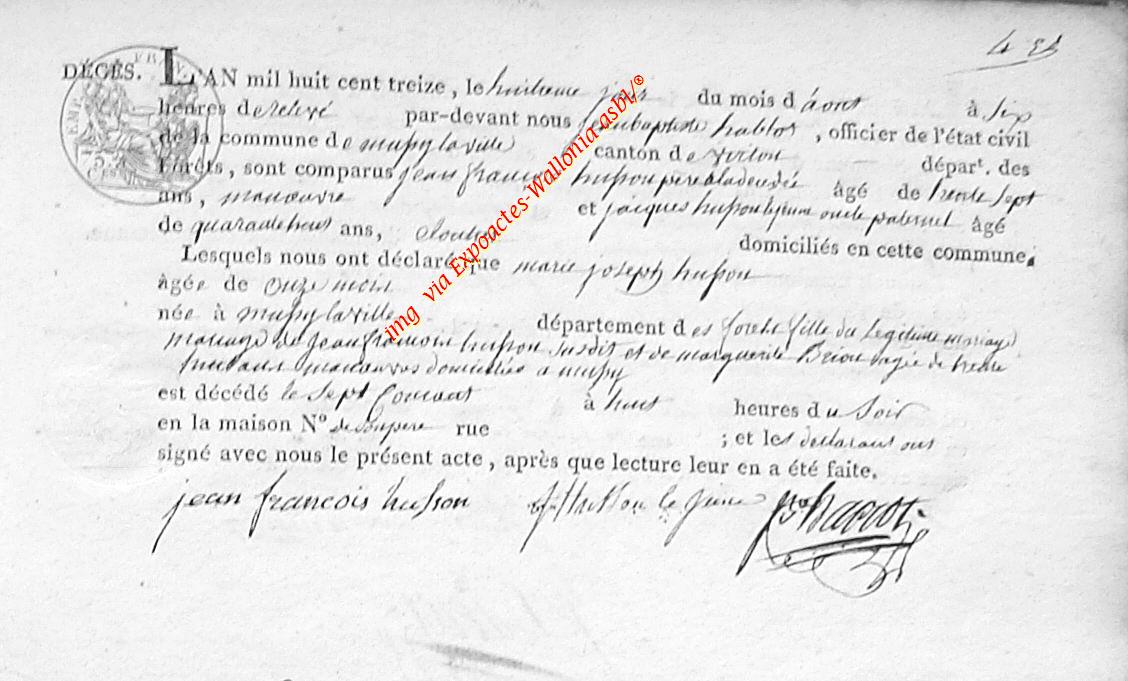 DÉCÉS. L'AN mil huit cent treize, le huitieme jour du mois d'aout à six
heures de relevé par-devant nous jeanbaptiste , officier de l'état civil
de la commune de mussylaville canton de virton départ. des
Forêts, sont comparus jean francois husson pere âgé de trente sept
ans, manœuvre et jacques husson lejeune oncle paternel âgé
de ans, domiciliés en cette commune.
Lesquels nous ont déclaré que marie joseph husson
âgée de onze mois
née à mussylaville département des forets fille du Legitime mariage
mariage de jean francois husson susdit et de marguerite agée de trente
ans manœuvres domiciliés a mussy
est décédé le sept Courant à heures du Soir
en la maison N° de son pere rue ; et les declarans ont
signé avec nous le présent acte, après que lecture leur en a été faite.
jean francois husson husson le jeune
img via Expoactes-Wallonia-asbl/®